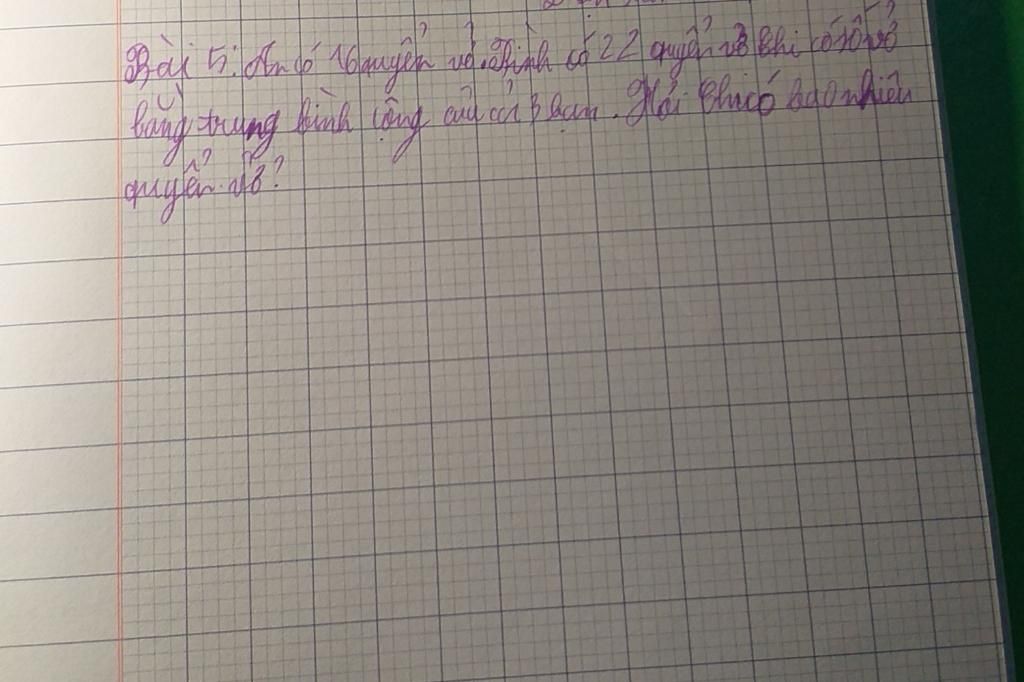 Bài 5: An có 16 quyển vở. Bình có 22 quyển vở Chi có số vở
bằng trung bình cộng của cả 3 bạn. Hỏi Chi có bao nhiêu
quyển vở?